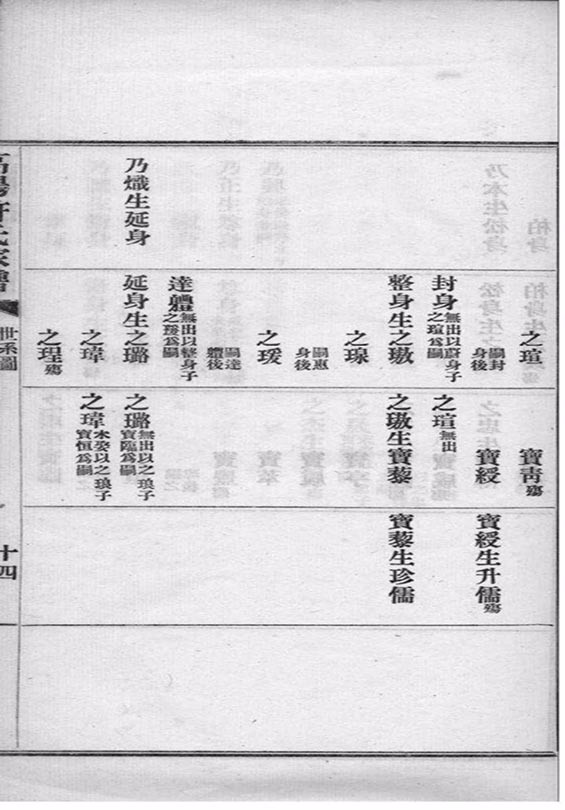 乃熾生延身
之瑄
嗣封身後
封身無出以蔚身子之瑄爲嗣
整身生之璈
之琜
嗣惠身後
之瑗
嗣達軆後
達軆無出以整身子之瑗爲嗣
延身生之璐
之瑋
之珵殤
寶靑殤
寶綬
之瑄無出
之璈生寶藜
之璐無出以之琅子寶臨爲嗣
之瑋未娶以之琅子寶恒爲嗣
寶綬生升儒殤
寶藜生珍儒
高陽許氏家譜
世系圖
十四